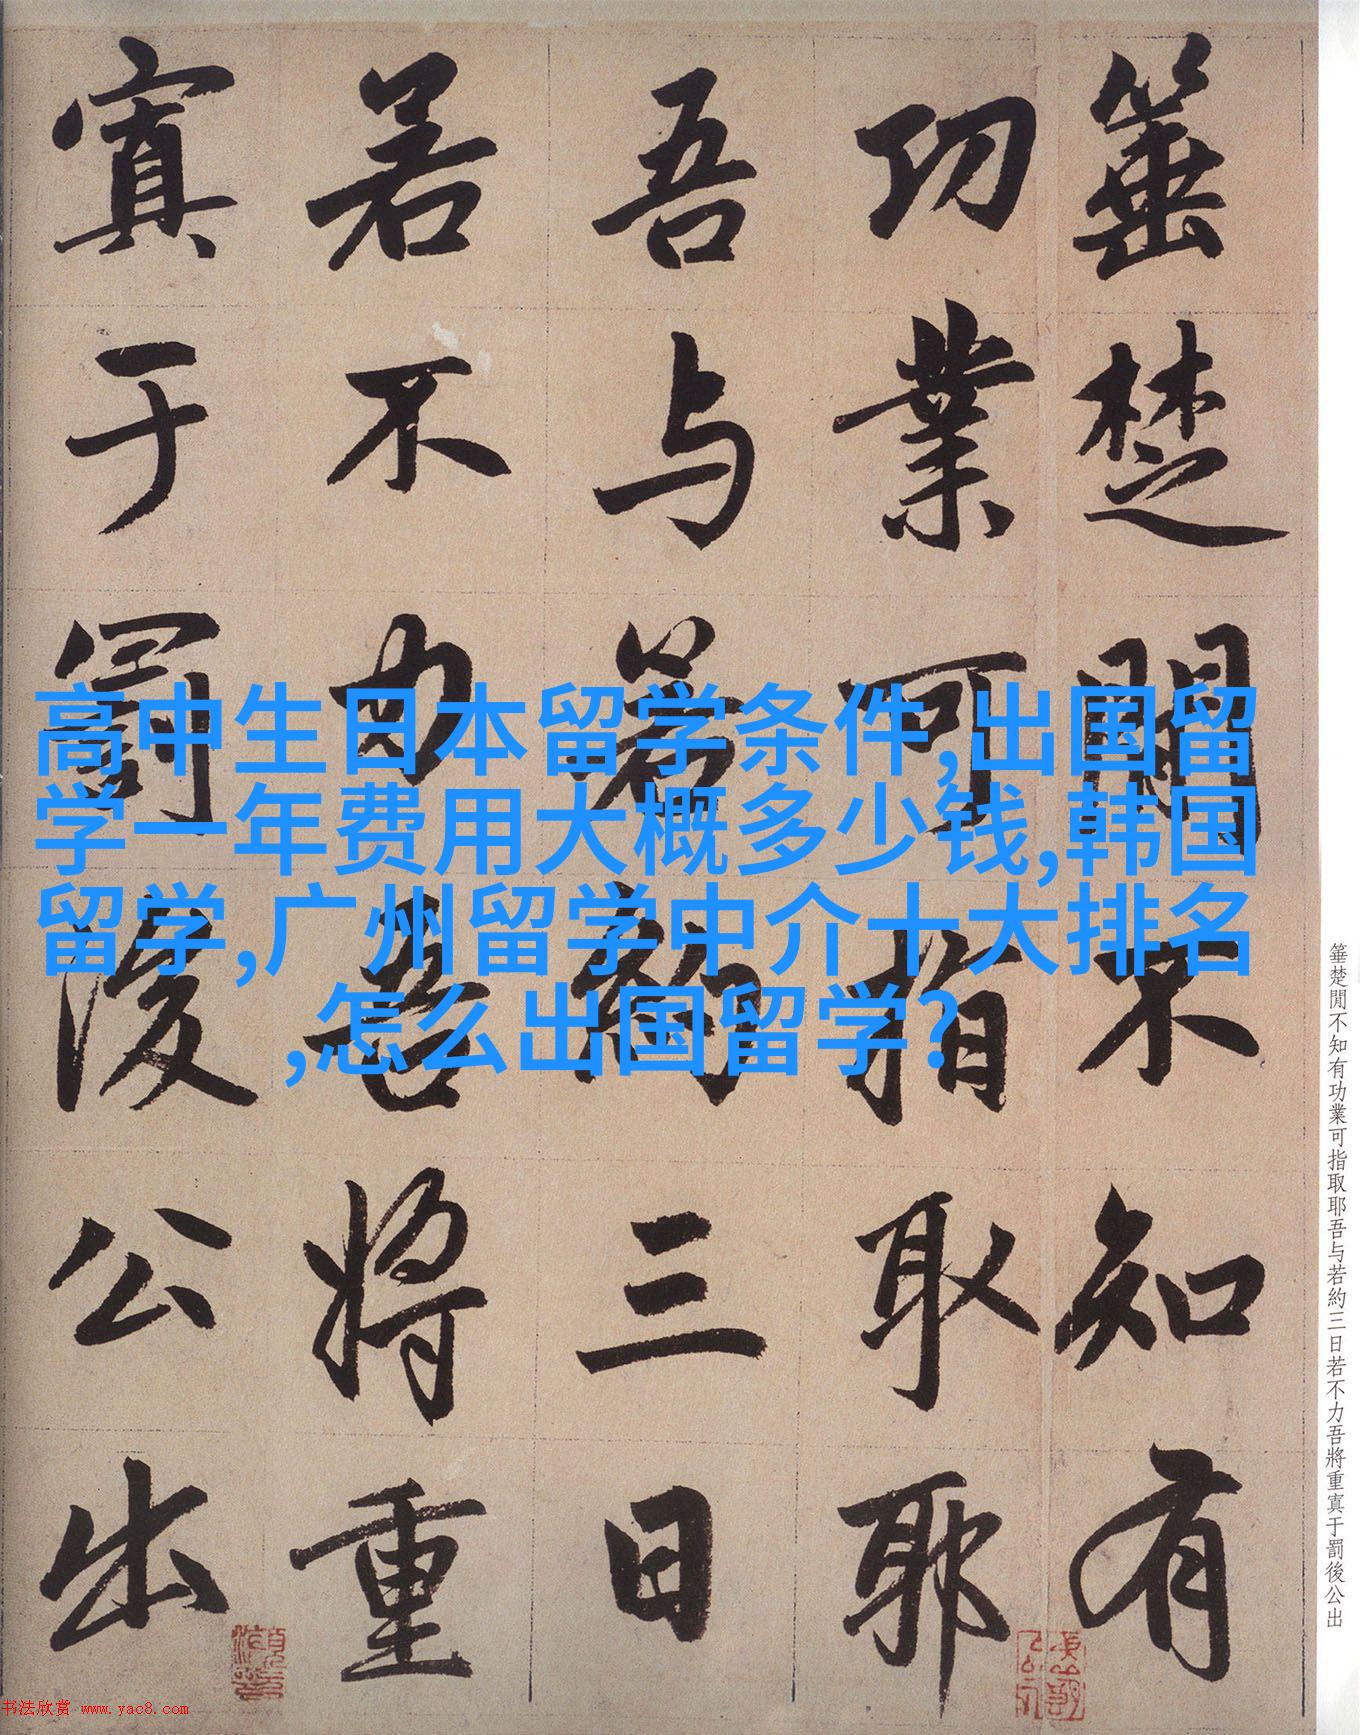 箠楚閒不知有
功業可指取耶
吾与若約三日
若不力吾將重
寘于罰後公出
高中生日本留学条件,出国留
学一年费用大概多少钱,韩国
留学,广州留学中介十大排名
,怎么出国留学?
箠楚閒不知有功業可指取耶吾与若約三日若不力吾將重寘于罰後公出
书法欣赏 www.yac8.com